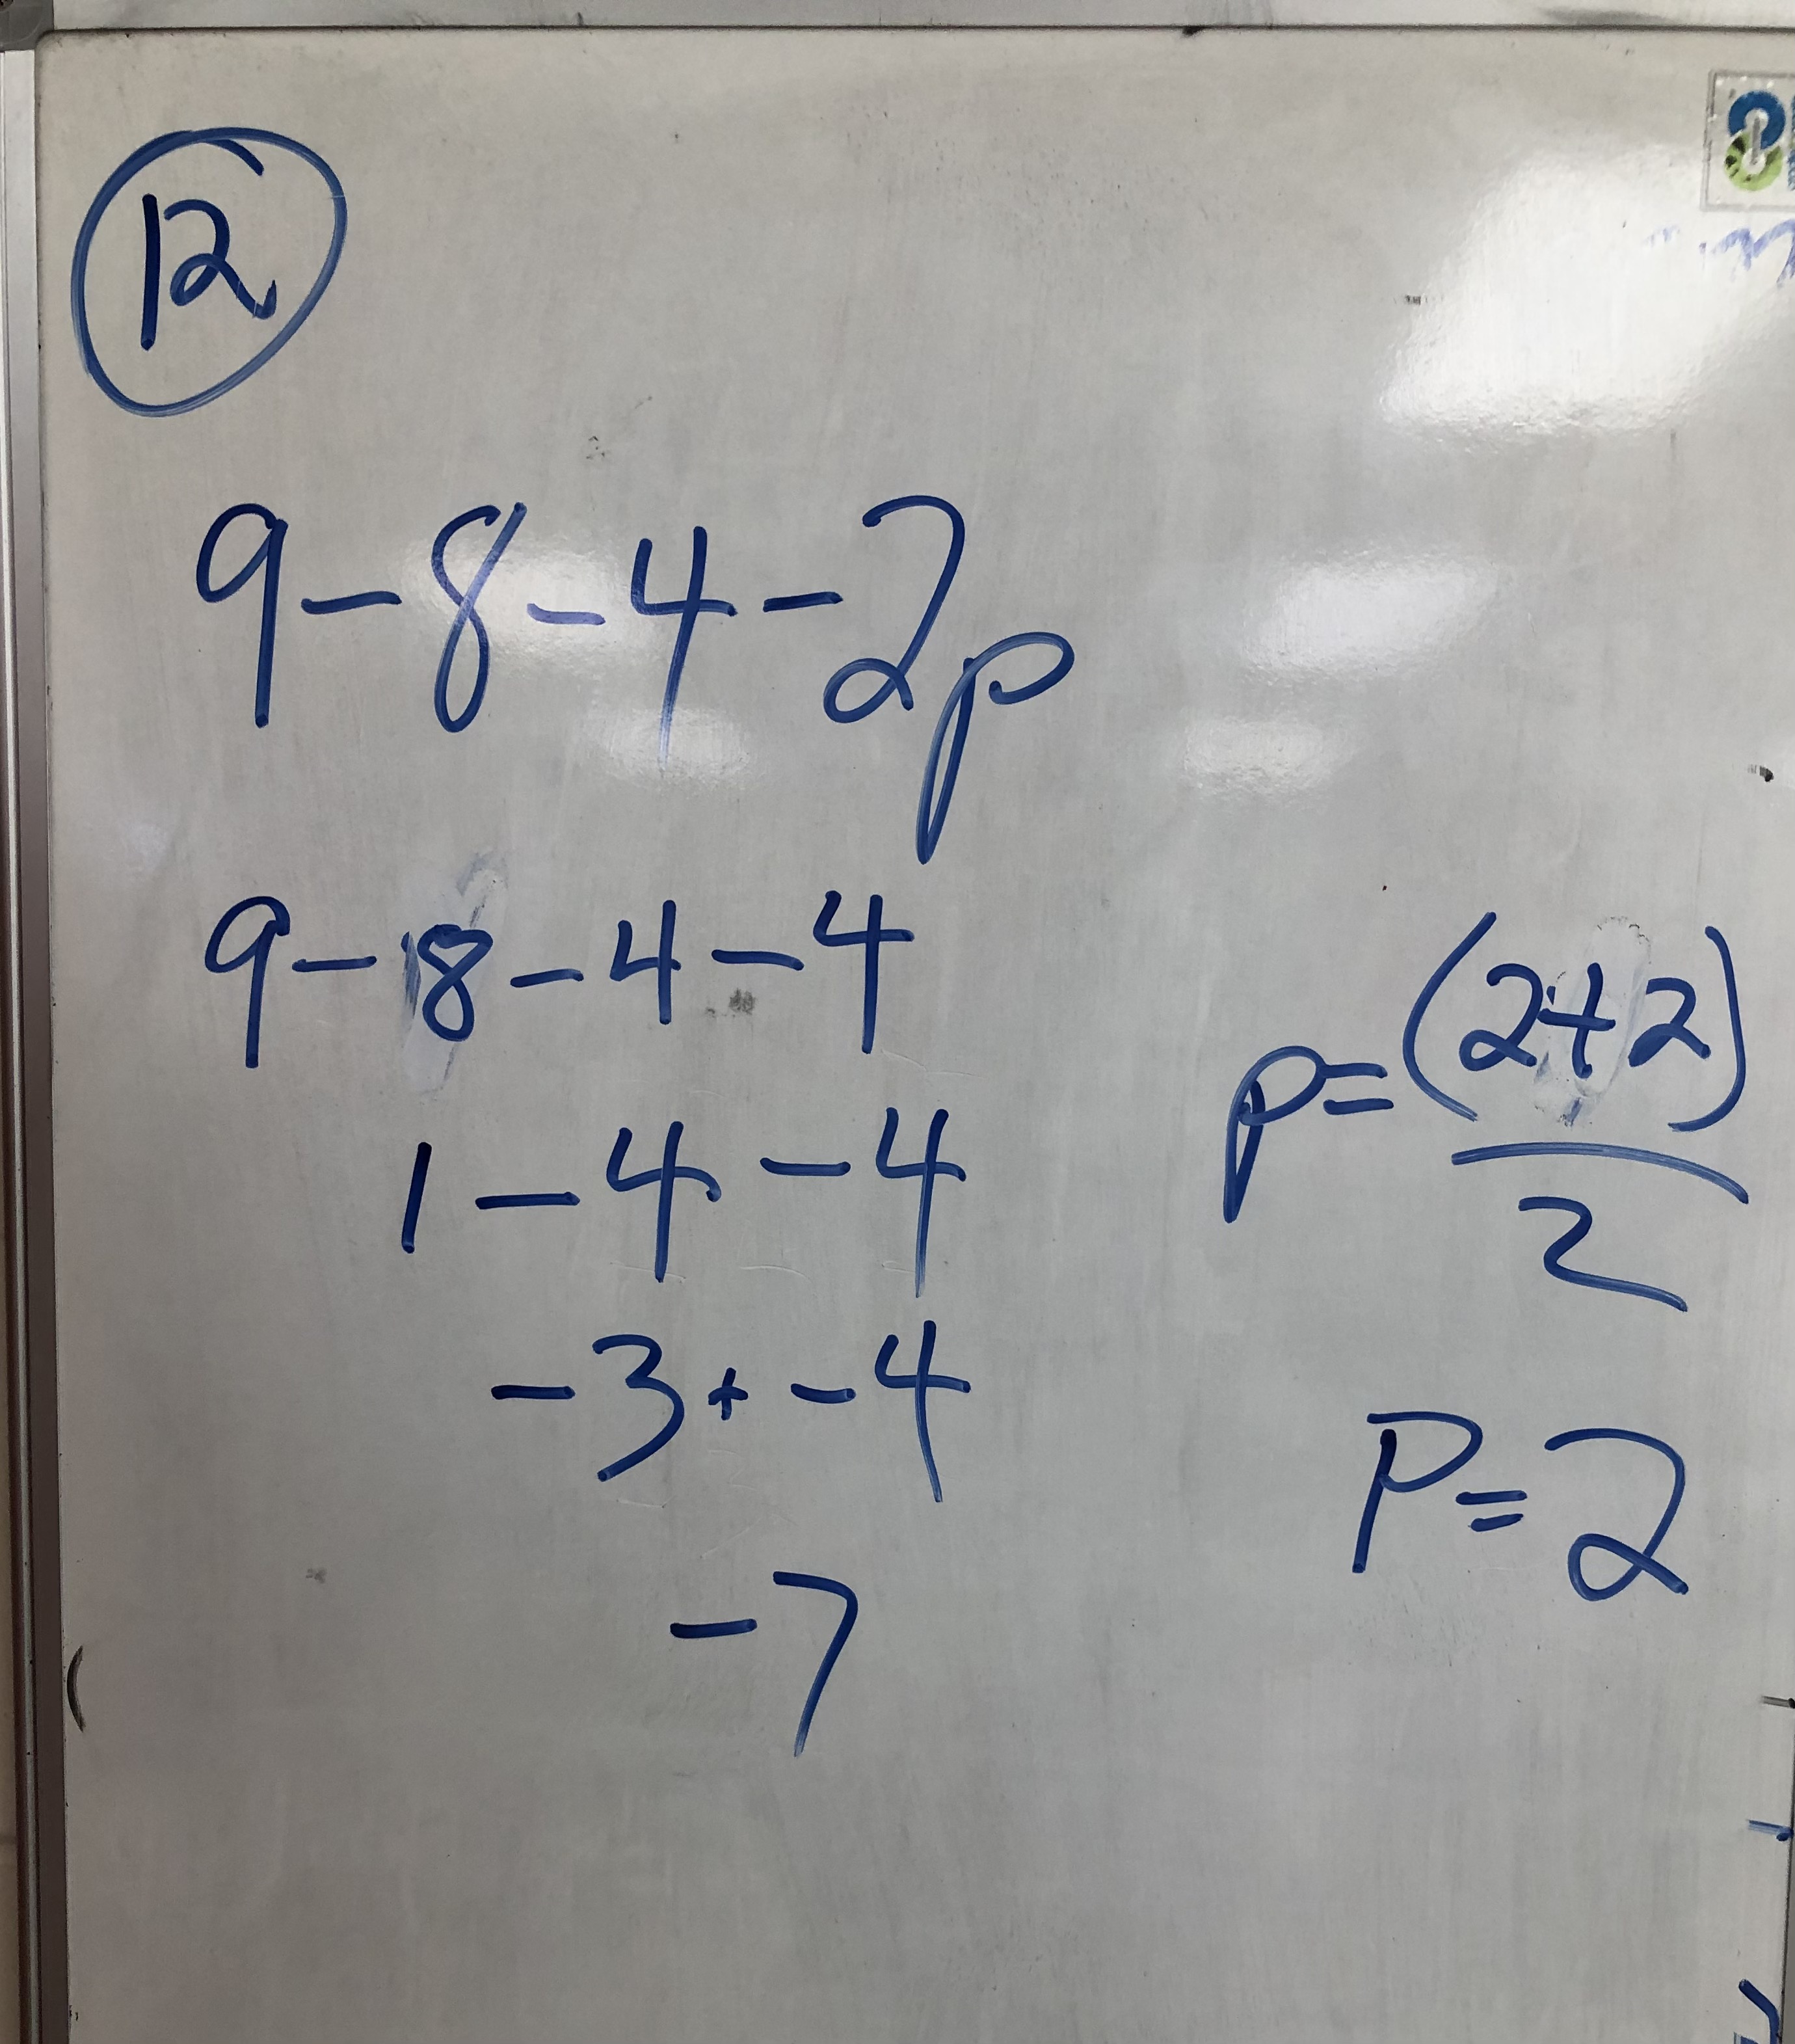 12
9-8-4-2p
9-8-4-4
1-4-4
-3+-4
-7
p=(2+2)
2
P=2